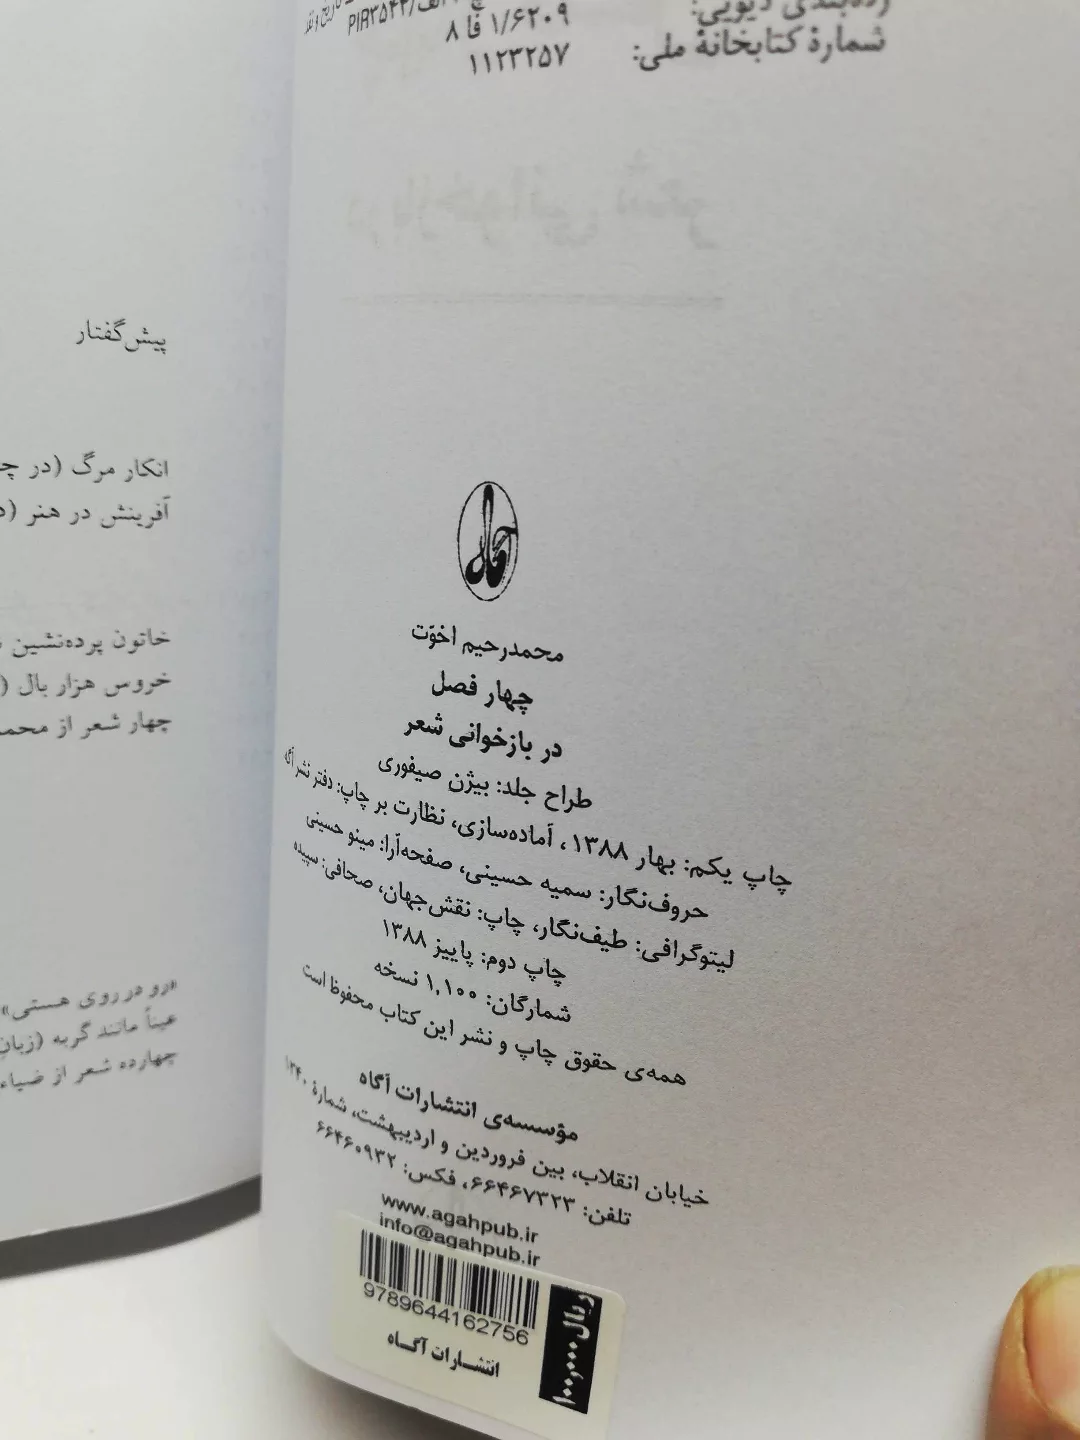 رده‌بندی دیویی:
۸ فا ۱/۶۲۰۹
شمارهٔ کتابخانهٔ ملی:
۱۱۲۳۲۵۷
آگاه
محمدرحیم اخوّت
چهار فصل
در بازخوانی شعر
طراح جلد: بیژن صیفوری
چاپ یکم: بهار ۱۳۸۸، آماده‌سازی، نظارت بر چاپ: دفتر نشر آگه
حروف‌نگار: سمیه حسینی، صفحه‌آرا: مینو حسینی
لیتوگرافی: طیف‌نگار، چاپ: نقش‌جهان، صحافی: سپیده
چاپ دوم: پاییز ۱۳۸۸
شمارگان: ۱,۱۰۰ نسخه
همه‌ی حقوق چاپ و نشر این کتاب محفوظ است
مؤسسه‌ی انتشارات آگاه
خیابان انقلاب، بین فروردین و اردیبهشت، شمارهٔ ۱۳۴۰
تلفن: ۶۶۴۶۷۳۲۳، فکس: ۶۶۴۶۰۹۳۲
www.agahpub.ir
info@agahpub.ir
9789644162756
انتشارات آگاه
۱۰۰,۰۰۰ ریال
پیش‌گفتار
انکار مرگ (در
آفرینش در هنر
خاتون پرده‌نشین
خروس هزار بال
چهار شعر از
«رو در روی هستی»
عیناً مانند گربه
چهارده شعر از